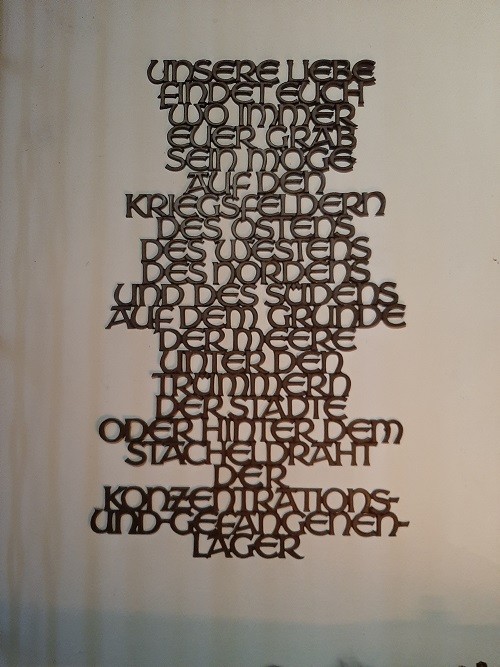 UNSERE LIEBE
FINDET EUCH
WO IMMER
EUER GRAB
SEIN MÖGE
AUF DEN
KRIEGSFELDERN
DES OSTENS
DES WESTENS
DES NORDENS
UND DES SÜDENS
AUF DEM GRUNDE
DER MEERE
UNTER DEN
TRÜMMERN
DER STÄDTE
ODER HINTER DEM
STACHELDRAHT
DER
KONZENTRATIONS-
UND-GEFANGENEN-
LAGER